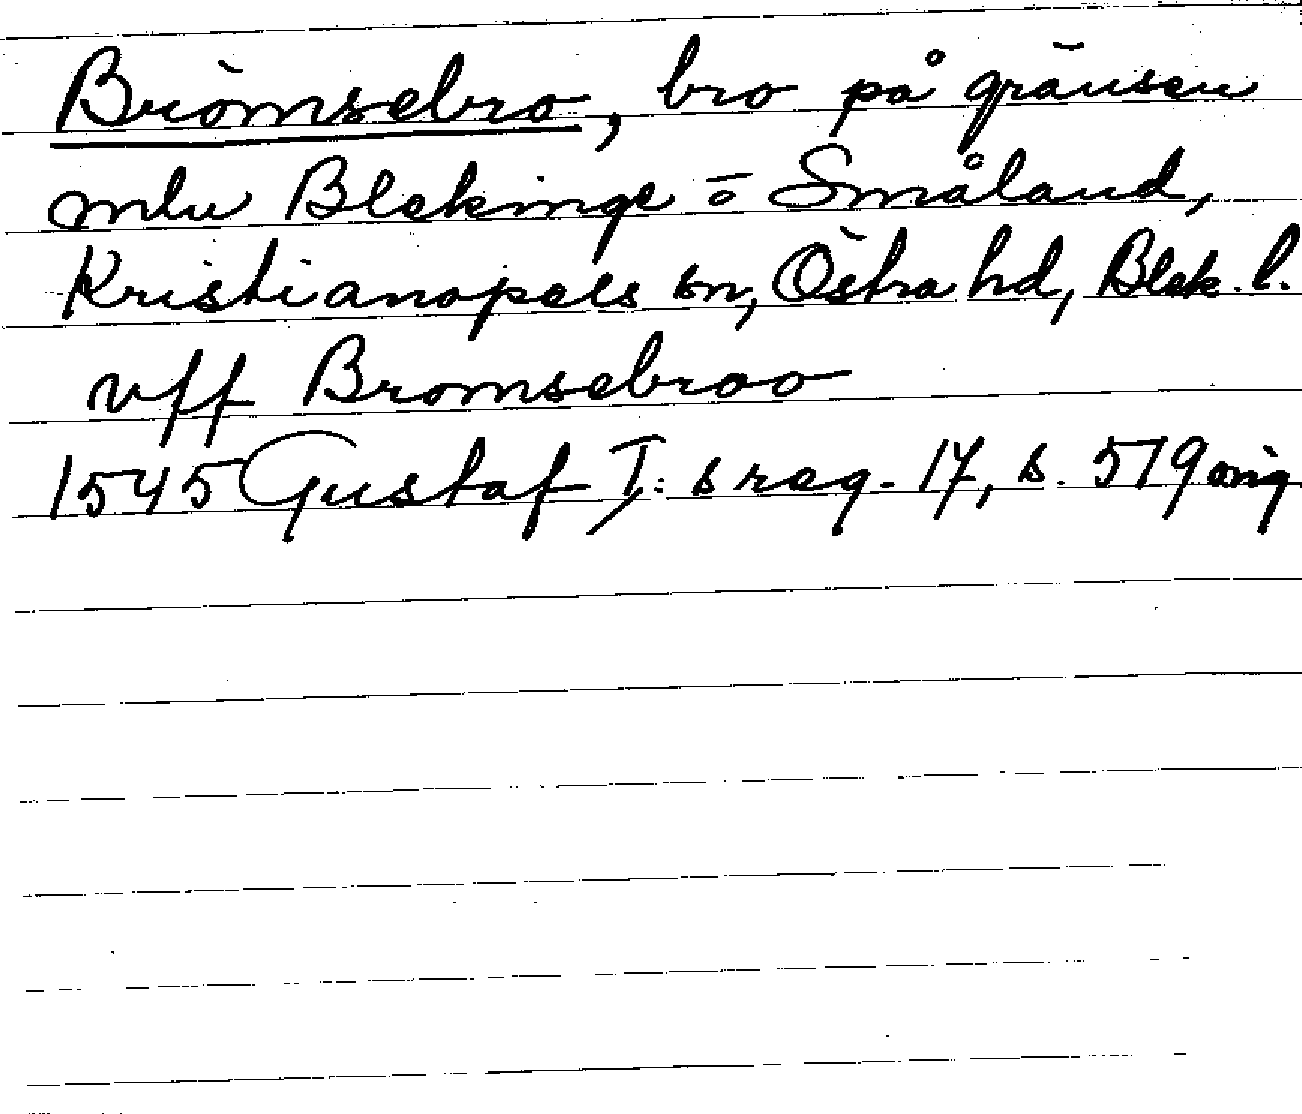 Brömsebro, bro på gränsen
mlu Blekinge o Småland,
Kristianopels sn, Östra hd, Blek. l.
vff Bromsebroo
1545 Gustaf I:s reg. 17, s. 579 orig